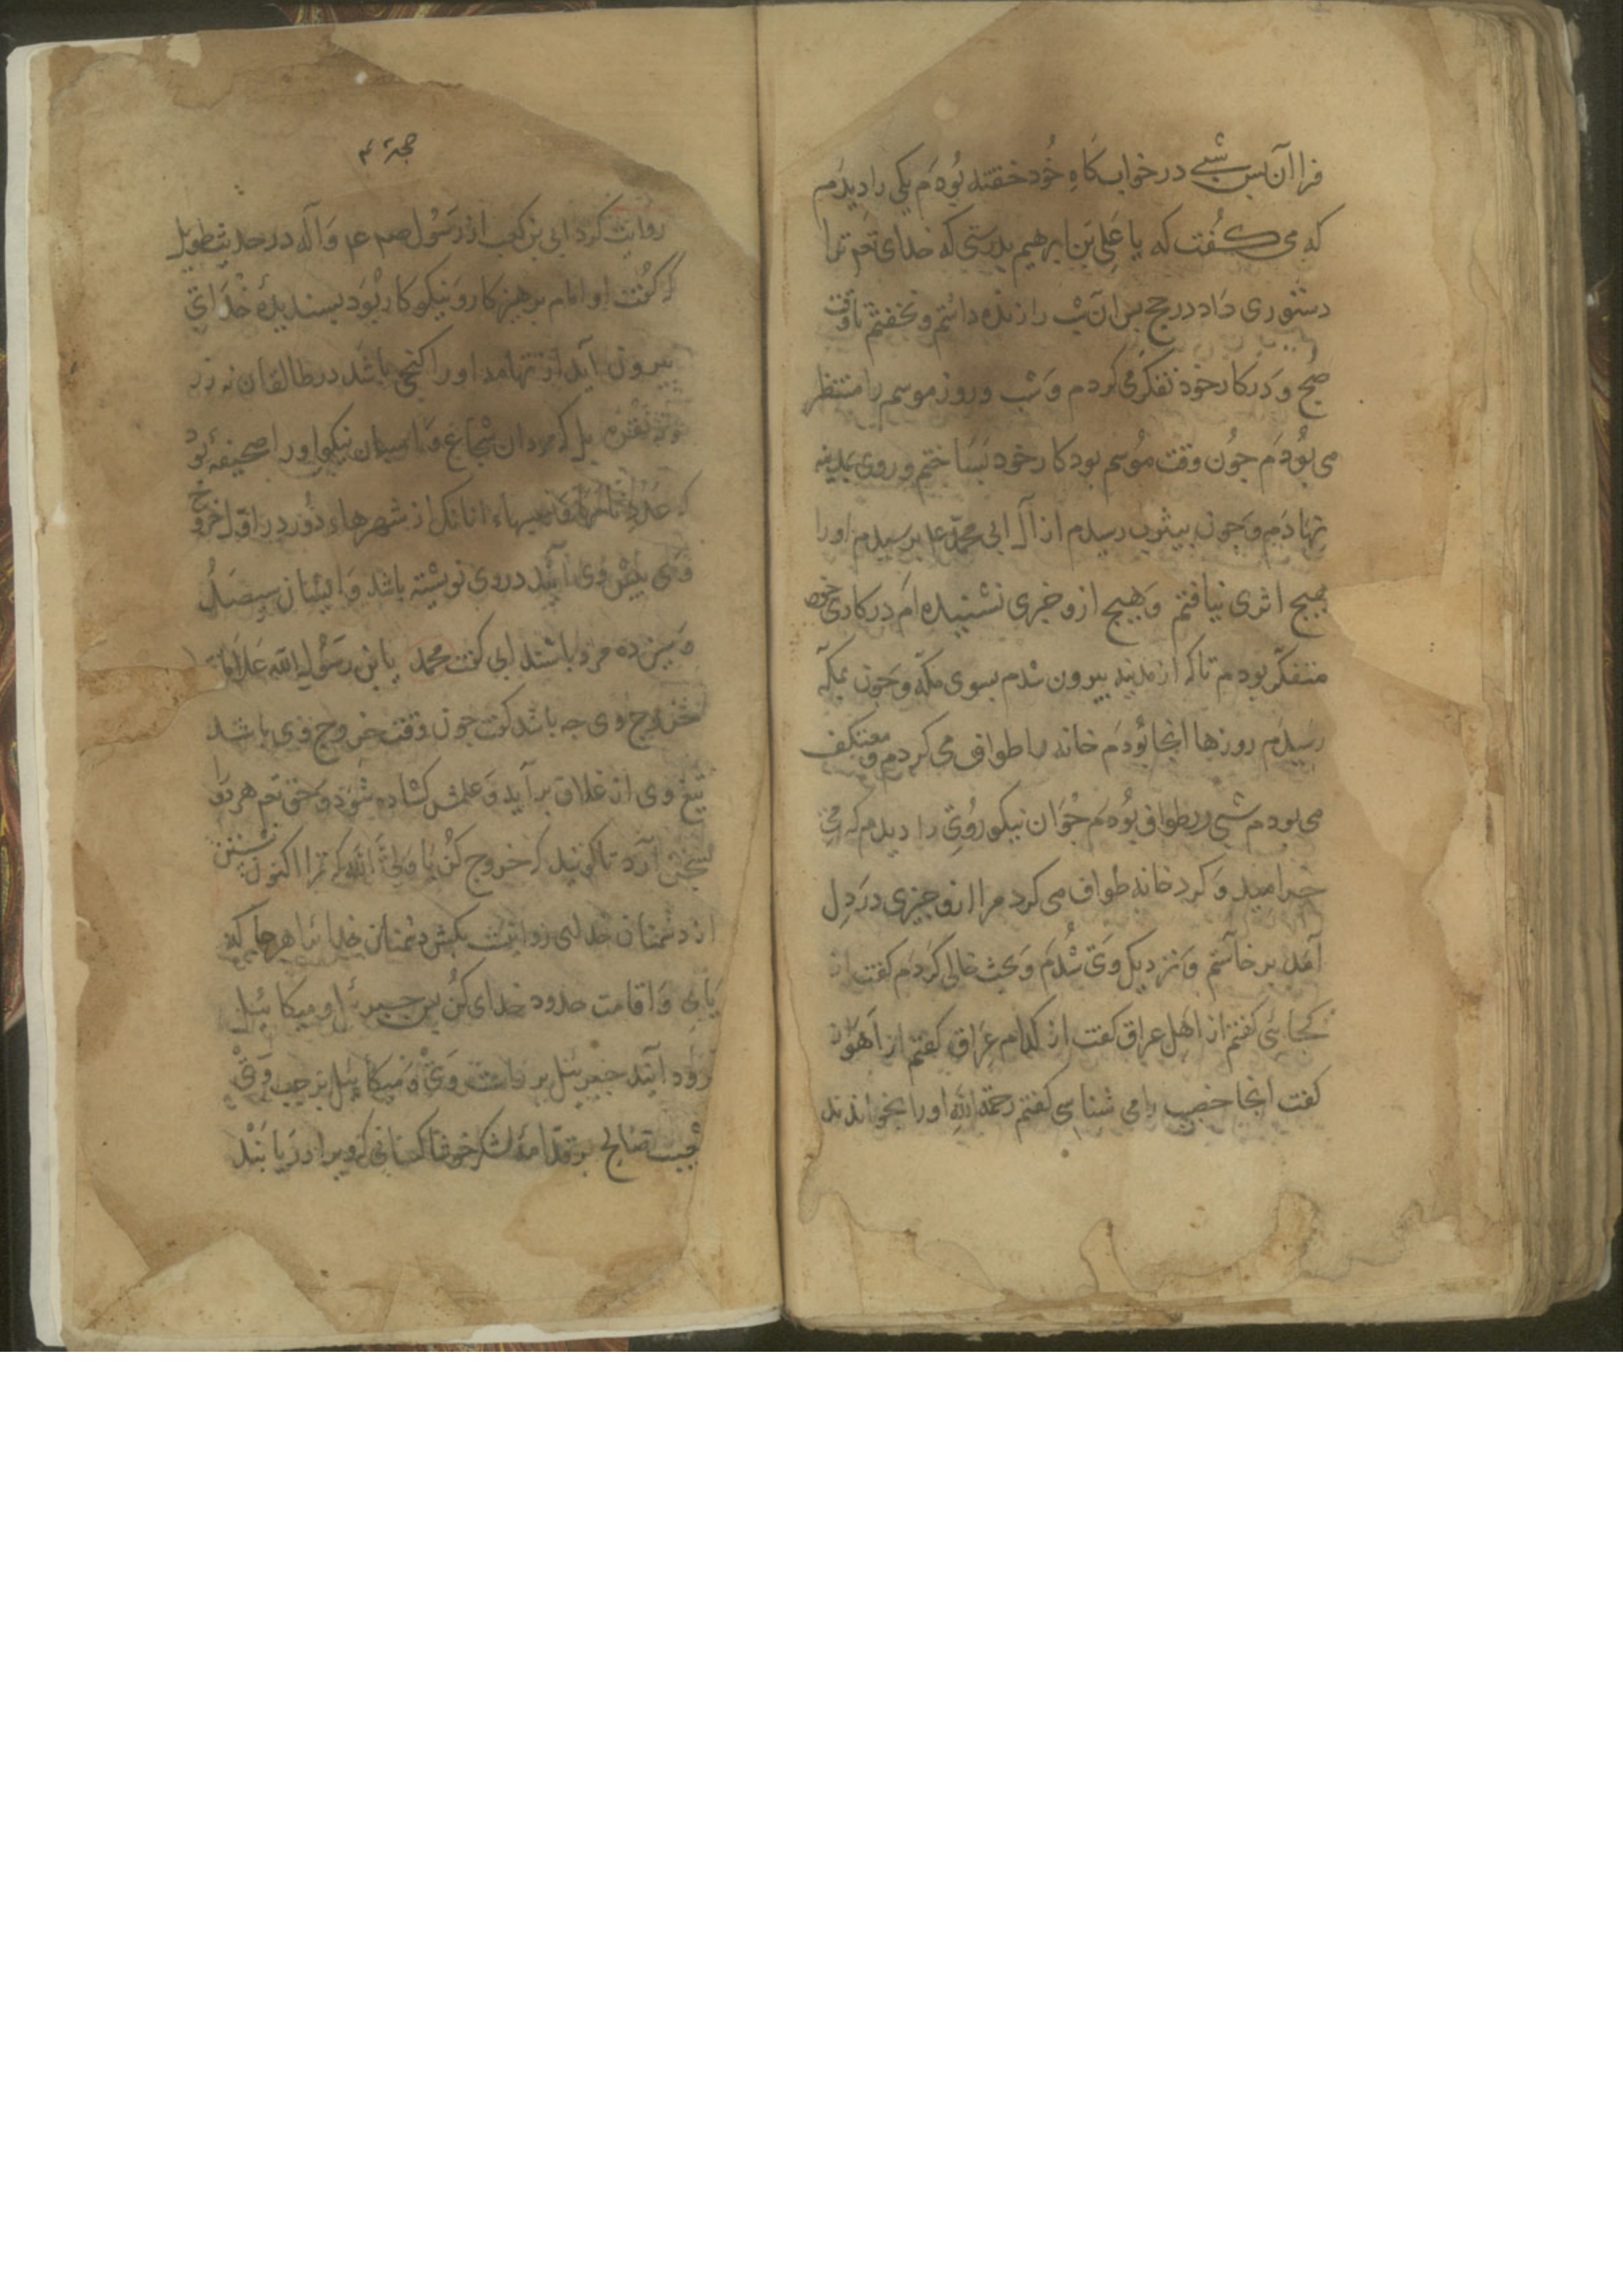 فرا آن بس شبی در خواب كاه خود خفته بودم یكی را دیدم
كه می كفت كه یا علی بن ابرهیم بدرستی كه خدای تعم ترا
دستوری داد در حج بس آن شب را زنده داشتم و نخفتم تا وقت
صبح و در كار خود تفكر می كردم و شب و روز موسم را منتظر
می بودم جون وقت موسم بود كار خود بساختم و روی بمدینه
نهادم و جون بیثرب رسیدم از آل ابی محمد ع برسیدم اورا
هیج اثری نیافتم و هیج ازو خبری نشنیده ام در كاری خود
متفكر بودم تا كه از مدینه بیرون شدم بسوی مكه و جون بمكه
رسیدم روزها آنجا بودم خانه را طواف می كردم و معتكف
می بودم شبی در طواف بودم جوان نیكو رویی را دیدم كه می
خرامید و كرد خانه طواف می كرد مرا ازو جیزی در دل
آمد بر خاستم و نزدیك وی شدم كفت از
كجایی كفتم از اهل عراق كفت از كدام عراق كفتم از اهواز
كفت آنجا خصیب را می شناسی كفتم رحمه الله اورا بخواندند
روایت كرد ابی بن كعب از رسول صم ع و آله در حدیث طویل
كه كفت او امام برهیزكار و نیكوكار بود بسندیده خدای
بیرون آید از تهامه اورا كنجی باشد در طالقان نه زر
و نه نقره بل كه مردان شجاع و اسبان نیكو اورا صحیفه بود
كه عدد از شهرها دور در اول خروج
وی بیش وی آیند در وی نویشته باشد و ایشان سیصد
و سیزده مرد باشند ابی كفت محمد یا بن رسول الله علامات
خروج وی جه باشد كفت جون وقت خروج وی باشد
تیغ وی از غلاف بر آید و علمش كشاده شود و حق تعم هر دو
بسخن آرد تا كویند كه خروج كن یا ولی الله كه ترا اكنون نشستن
از دشمنان خدای روا نیست بكش دشمنان خدا را هر جا كه
یابی و اقامت حدود خدای كن بس جبرئل و میكائیل
فرود آیند جبرئیل بر راست وی و میكائیل بر جب وی
شعیب صالح بر مقدمه لشكر خوشا كسانی كه ویرا دریابند